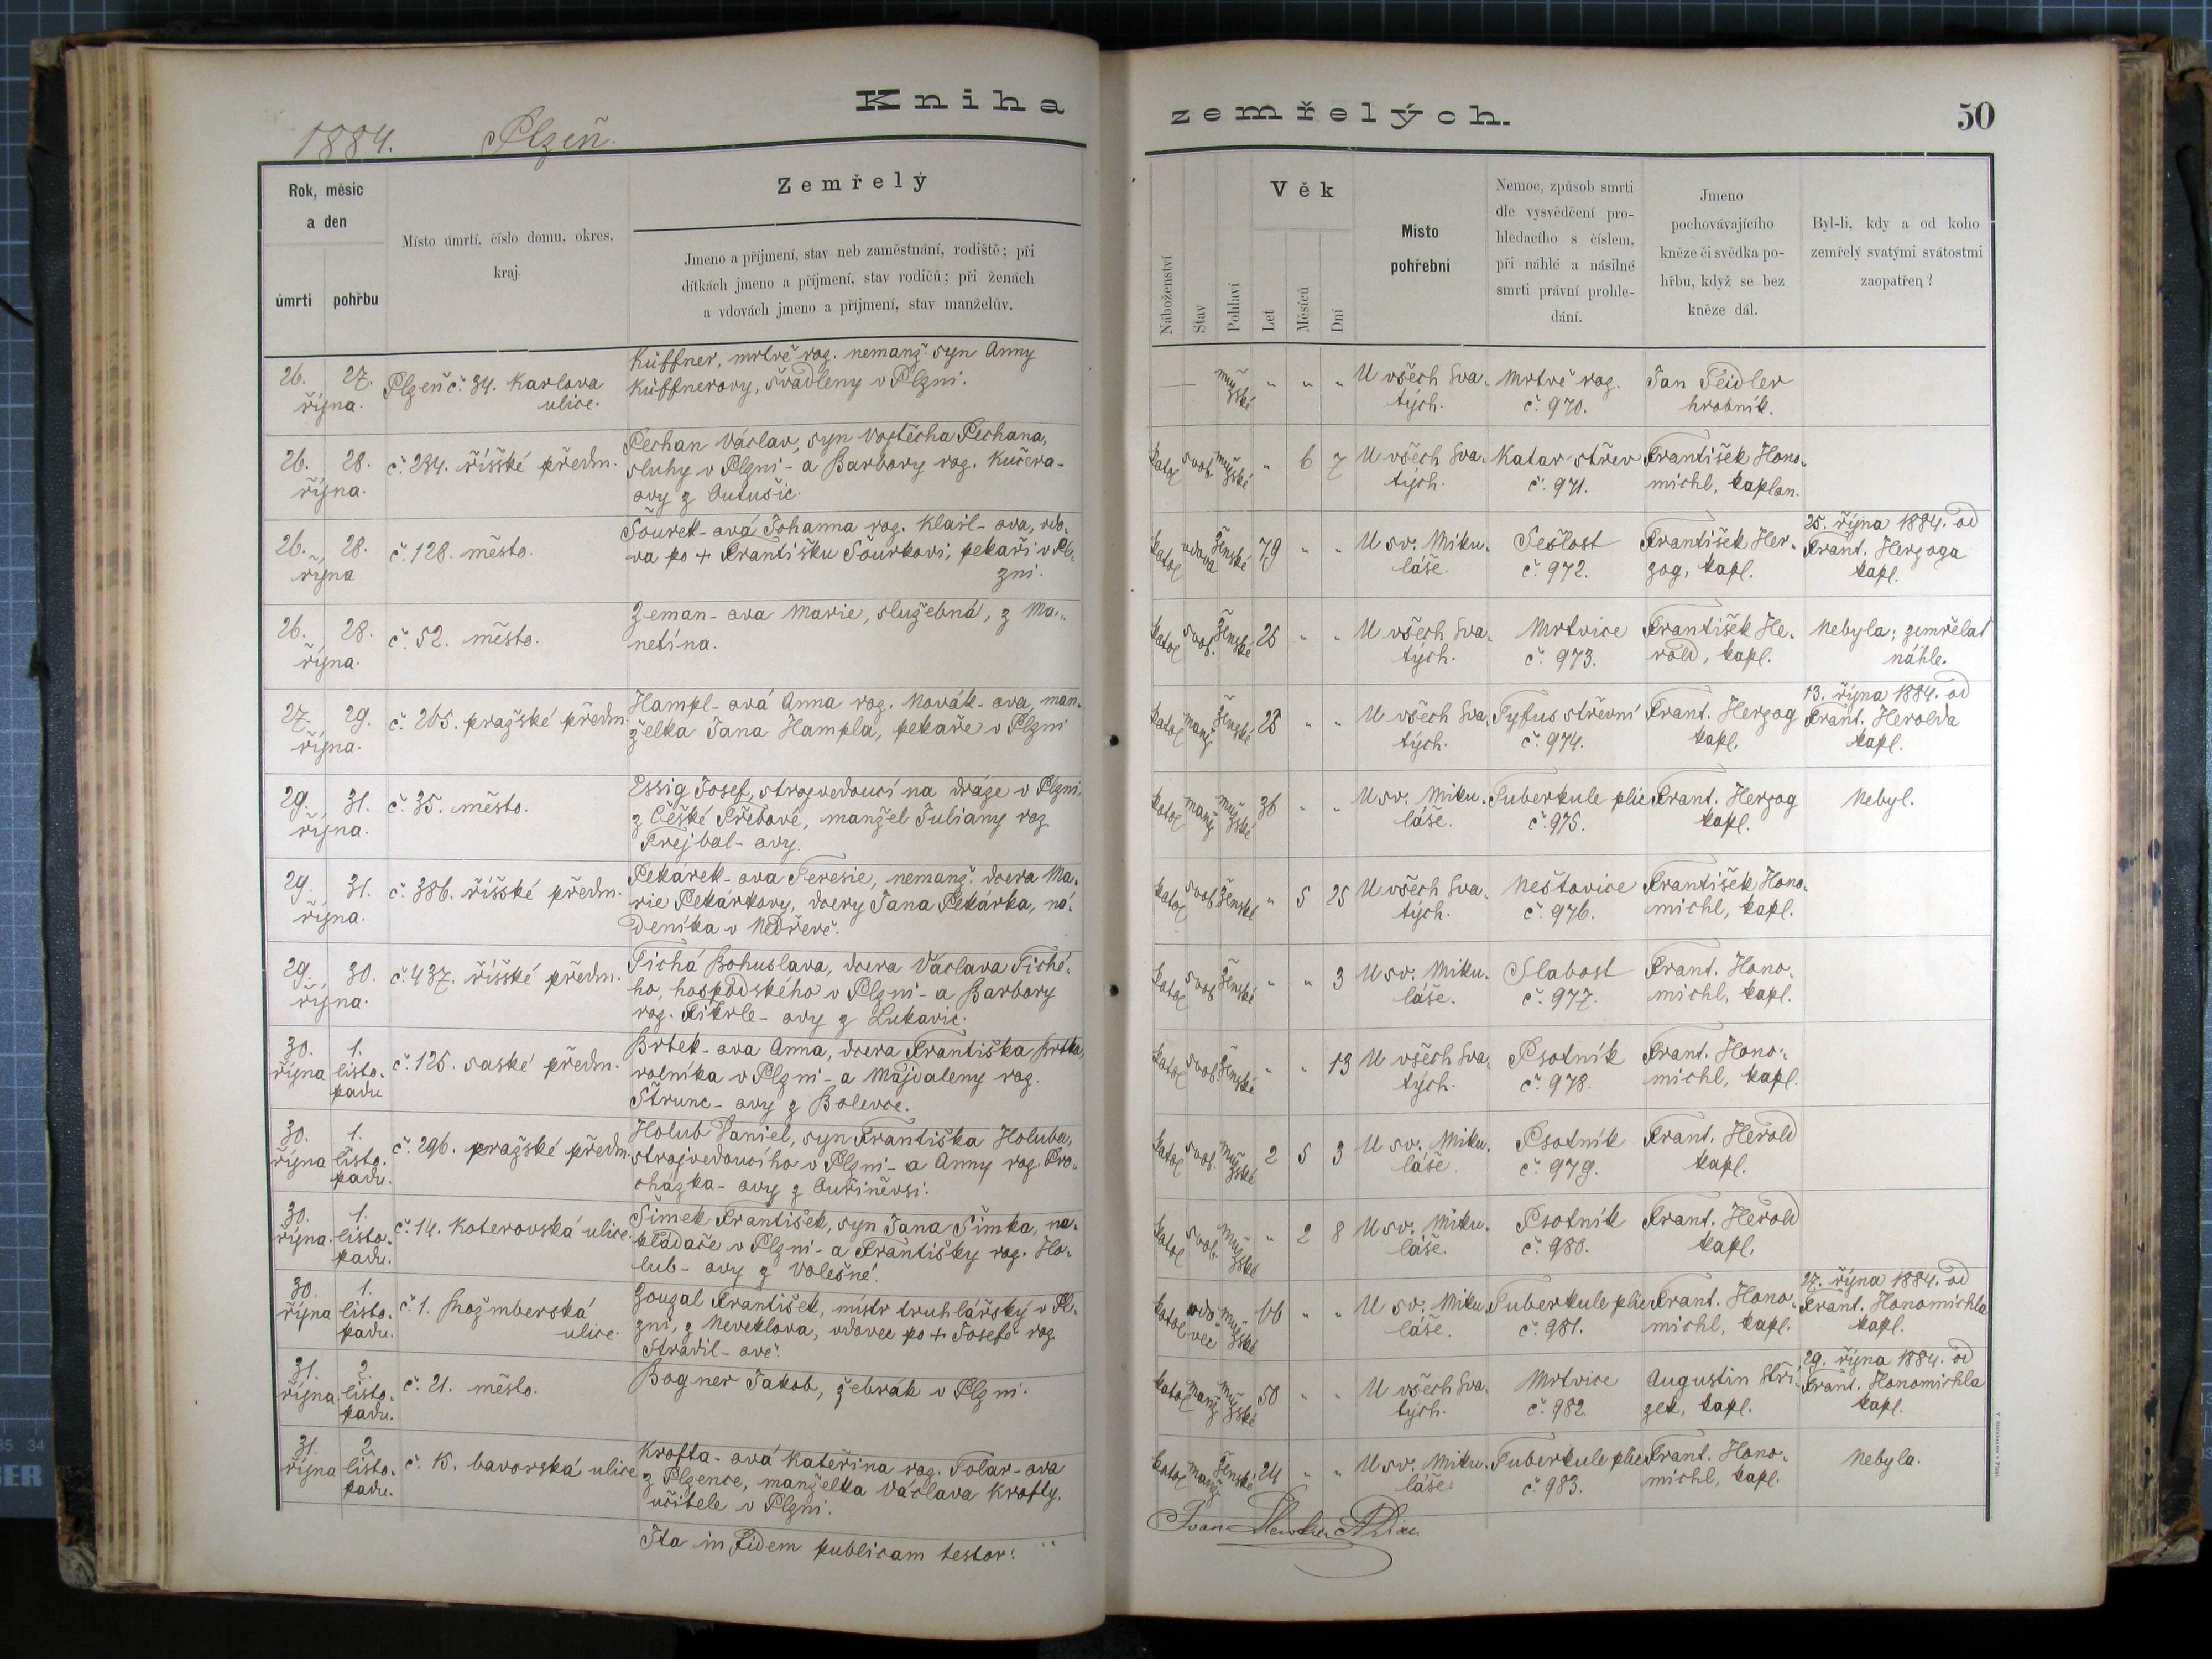 Kniha
1884. Plzeň.
Rok, měsíc
a den
úmrtí
pohřbu
Místo úmrtí, číslo domu, okres,
kraj.
Zemřelý
Jmeno a příjmení, stav neb zaměstnání, rodiště; při
dítkách jmeno a příjmení, stav rodičů; při ženách
a vdovách jmeno a příjmení, stav manželův.
26. 27.
října.
Plzeň č. 34. Karlova
ulice.
Küffner, mrtvě roz. nemanž. syn Anny
Küffnerovy, švadleny v Plzni.
26. 28.
října.
č. 234. říšské předm.
Pechan Václav, syn Vojtěcha Pechana,
sluhy v Plzni - a Barbory roz. Kučera-
ovy z Outušic.
26. 28.
října
č. 128. město.
Šourek-ová Johanna roz. Klail-ova, vdo-
va po + Františku Šourkovi, pekaři v Pl-
zni.
26. 28.
října.
č. 52. město.
Zeman-ova Marie, služebná, z Ma-
netína.
27. 29.
října.
č. 265. pražské předm.
Hampl-ová Anna roz. Novák-ova, man-
želka Jana Hampla, pekaře v Plzni
29. 31.
října.
č. 35. město.
Essig Josef, strojvedoucí na dráze v Plzni,
z České Třebové, manžel Juliany roz
Frejbal-ovy.
29. 31.
října.
č. 386. říšské předm.
Pekárek-ova Teresie, nemanž. dcera Ma-
rie Pekárkovy, dcery Jana Pekárka, ná-
deníka v Nedřevě.
29. 30.
října.
č. 437. říšské předm.
Tichá Bohuslava, dcera Václava Tiché-
ho, hospodského v Plzni - a Barbory
roz. Fikrle-ovy z Lukavic.
30. 1.
října listo-
padu
č. 125. saské předm.
Brtek-ova Anna, dcera Františka Brtka,
rolníka v Plzni - a Majdaleny roz.
Štrunc-ovy z Bolevce.
30. 1.
října listo-
padu.
č. 296. pražské předm.
Holub Daniel, syn Františka Holuba,
strojvedoucího v Plzni - a Anny roz. Pro-
chazka-ovy z Ouřiněvsi.
30. 1.
října. listo-
padu.
č. 14. Koterovská ulice.
Šimek František, syn Jana Šimka, na-
kladače v Plzni - a Františky roz. Ho-
lub-ovy z Volešné.
30. 1.
října listo-
padu.
č. 1. Rožmberská
ulice.
Zouzal František, mistr truhlářský v Pl-
zni, z Neveklova, vdovec po + Josefě roz
Strádil-ové.
31. 2.
října listo-
padu.
č. 21. město.
Bogner Jakob, žebrák v Plzni.
31. 2.
října listo-
padu.
č. 15. bavorská ulice
Krofta-ová Kateřina roz. Tolar-ova
z Plzence, manželka Václava Krofty,
učitele v Plzni.
Ita in fidem publicam testor:
zemřelých.
50
Náboženství
Stav
Pohlaví
Věk
Let
Měsíců
Dní
Místo
pohřební
Nemoc, způsob smrti
dle vysvědčení pro-
hledacího s číslem,
při náhlé a násilné
smrti právní prohle-
dání.
Jmeno
pochovávajícího
kněze či svědka po-
hřbu, když se bez
kněze dál.
Byl-li, kdy a od koho
zemřelý svatými svátostmi
zaopatřen?
— mužské " " " U všech Sva- Mrtvě roz. Jan Feidler
tých. č. 970. hrobník.
katol svob. mužské " 6 7 U všech Sva- Katar střev František Hono-
tých. č. 971. michl, kaplan.
25. října 1884. od
katol vdova ženské 79 " " U sv. Miku- Sešlost František Her- Frant. Herzoga
láše. č. 972. zog, kapl. kapl.
katol svob. ženské 25 " " U všech Sva- Mrtvice František He- Nebyla; zemřelať
tých. č. 973. rold, kapl. náhle.
13. října 1884. od
katol manž ženské 28 " " U všech Sva- Tyfus střevní Frant. Herzog Frant. Herolda
tých. č. 974. kapl. kapl.
katol manž mužské 36 " " U sv. Miku- Tuberkule plic Frant. Herzog Nebyl.
láše. č. 975. kapl.
katol svob. ženské " 5 25 U všech Sva- Neštovice František Hono-
tých. č. 976. michl, kapl.
katol svob ženské " " 3 U sv. Miku- Slabost Frant. Hono-
láše. č. 977. michl, kapl.
katol svob. ženské " " 13 U všech Sva- Psotník Frant. Hono-
tých. č. 978. michl, kapl.
katol svob. mužské 2 5 3 U sv. Miku- Psotník Frant. Herold
láše. č. 979. kapl.
katol svob. mužské " 2 8 U sv. Miku- Psotník Frant. Herold
láše. č. 980. kapl.
27. října 1884. od
katol vdovec mužské 66 " " U sv. Miku- Tuberkule plic Frant. Hono- Frant. Honomichla
láše. č. 981. michl, kapl. kapl.
29. října 1884. od
katol manž mužské 50 " " U všech Sva- Mrtvice Augustin Stří- Frant. Honomichla
tých. č. 982. zek, kapl. kapl.
katol manž. ženské 24 " " U sv. Miku- Tuberkule plic Frant. Hono- Nebyla.
láše č. 983. michl, kapl.